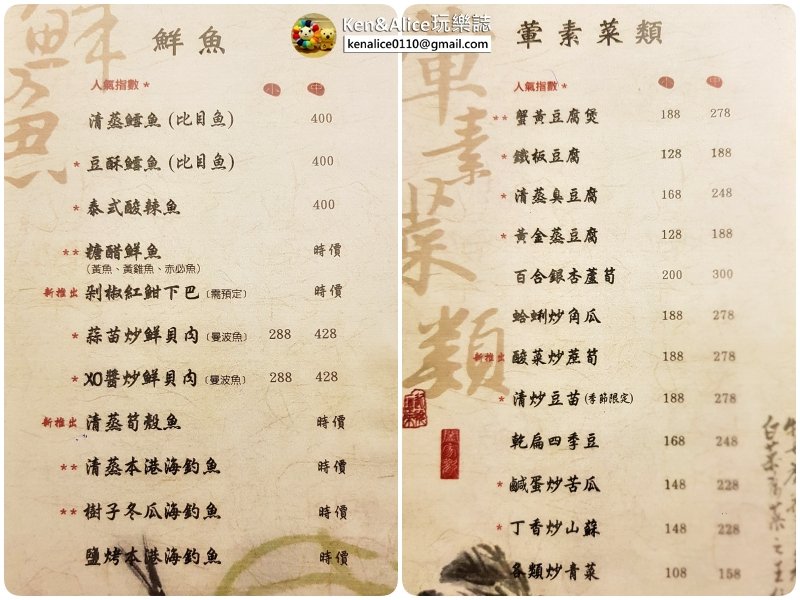 Ken&Alice玩樂誌
kenalice0110@gmail.com
鮮魚
鮮魚
人氣指數 * 小 中
清蒸鱈魚 (比目魚) 400
* 豆酥鱈魚 (比目魚) 400
* 泰式酸辣魚 400
** 糖醋鮮魚 時價
(黃魚、黃雞魚、赤必魚)
新推出 剁椒紅魽下巴 (需預定) 時價
* 蒜苗炒鮮貝肉 (曼波魚) 288 428
* XO醬炒鮮貝肉 (曼波魚) 288 428
新推出 清蒸筍殼魚 時價
** 清蒸本港海釣魚 時價
** 樹子冬瓜海釣魚 時價
鹽烤本港海釣魚 時價
葷素菜類
葷素菜類
人氣指數 * 小 中
** 蟹黃豆腐煲 188 278
* 鐵板豆腐 128 188
* 清蒸臭豆腐 168 248
* 黃金蒸豆腐 128 188
百合銀杏蘆筍 200 300
蛤蜊炒角瓜 188 278
新推出 酸菜炒蔗筍 188 278
* 清炒豆苗 (季節限定) 188 278
乾扁四季豆 168 248
* 鹹蛋炒苦瓜 148 228
* 丁香炒山蘇 148 228
各類炒青菜 108 158